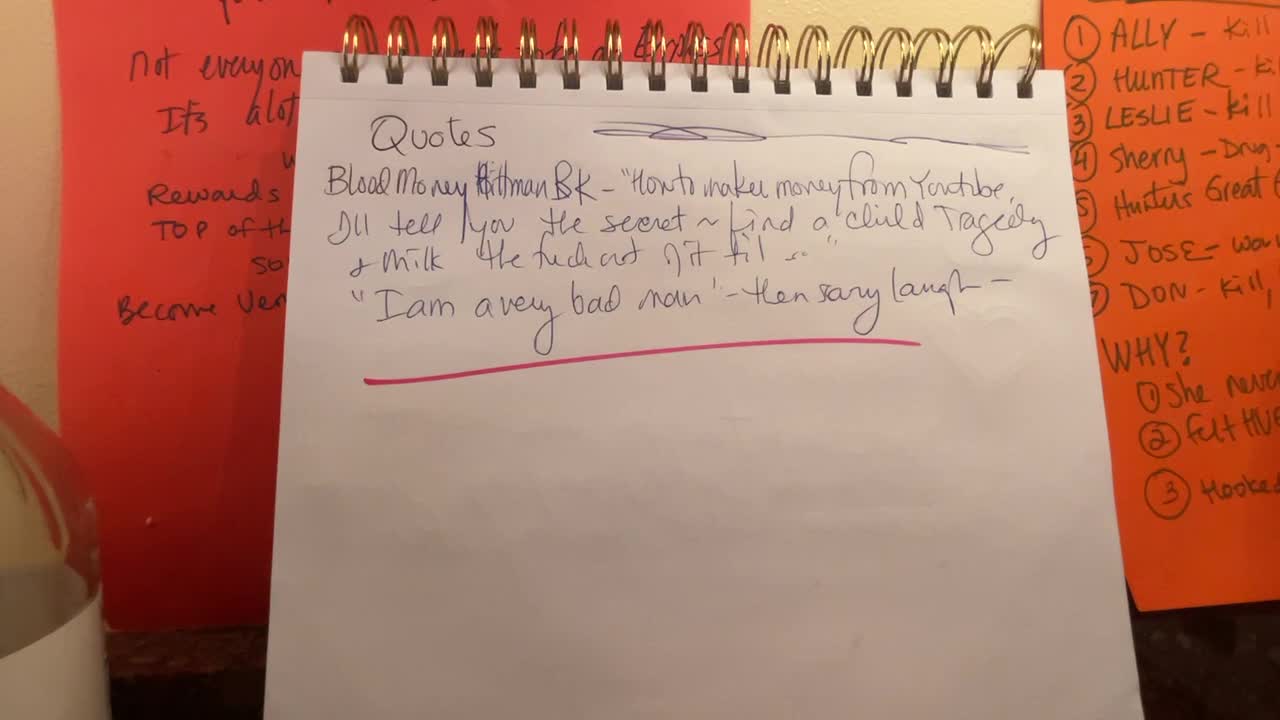 Quotes
Blood Money Hittman BK - "How to makes money from Youtube,
I'll tell you the secret ~ find a child Tragedy
& Milk the fuck out of it til ... "
"I am a very bad man" - then scary laugh -
not everyon
It's alot
w
Rewards
TOP of th
so
Become Ver
① ALLY - Kill
② HUNTER - Ki
③ LESLIE - Kill
④ Sherry - Drug -
⑤ Hunters Great
JOSE - wa
DON - Kill,
WHY?
① She never
② felt HU
③ Hooked